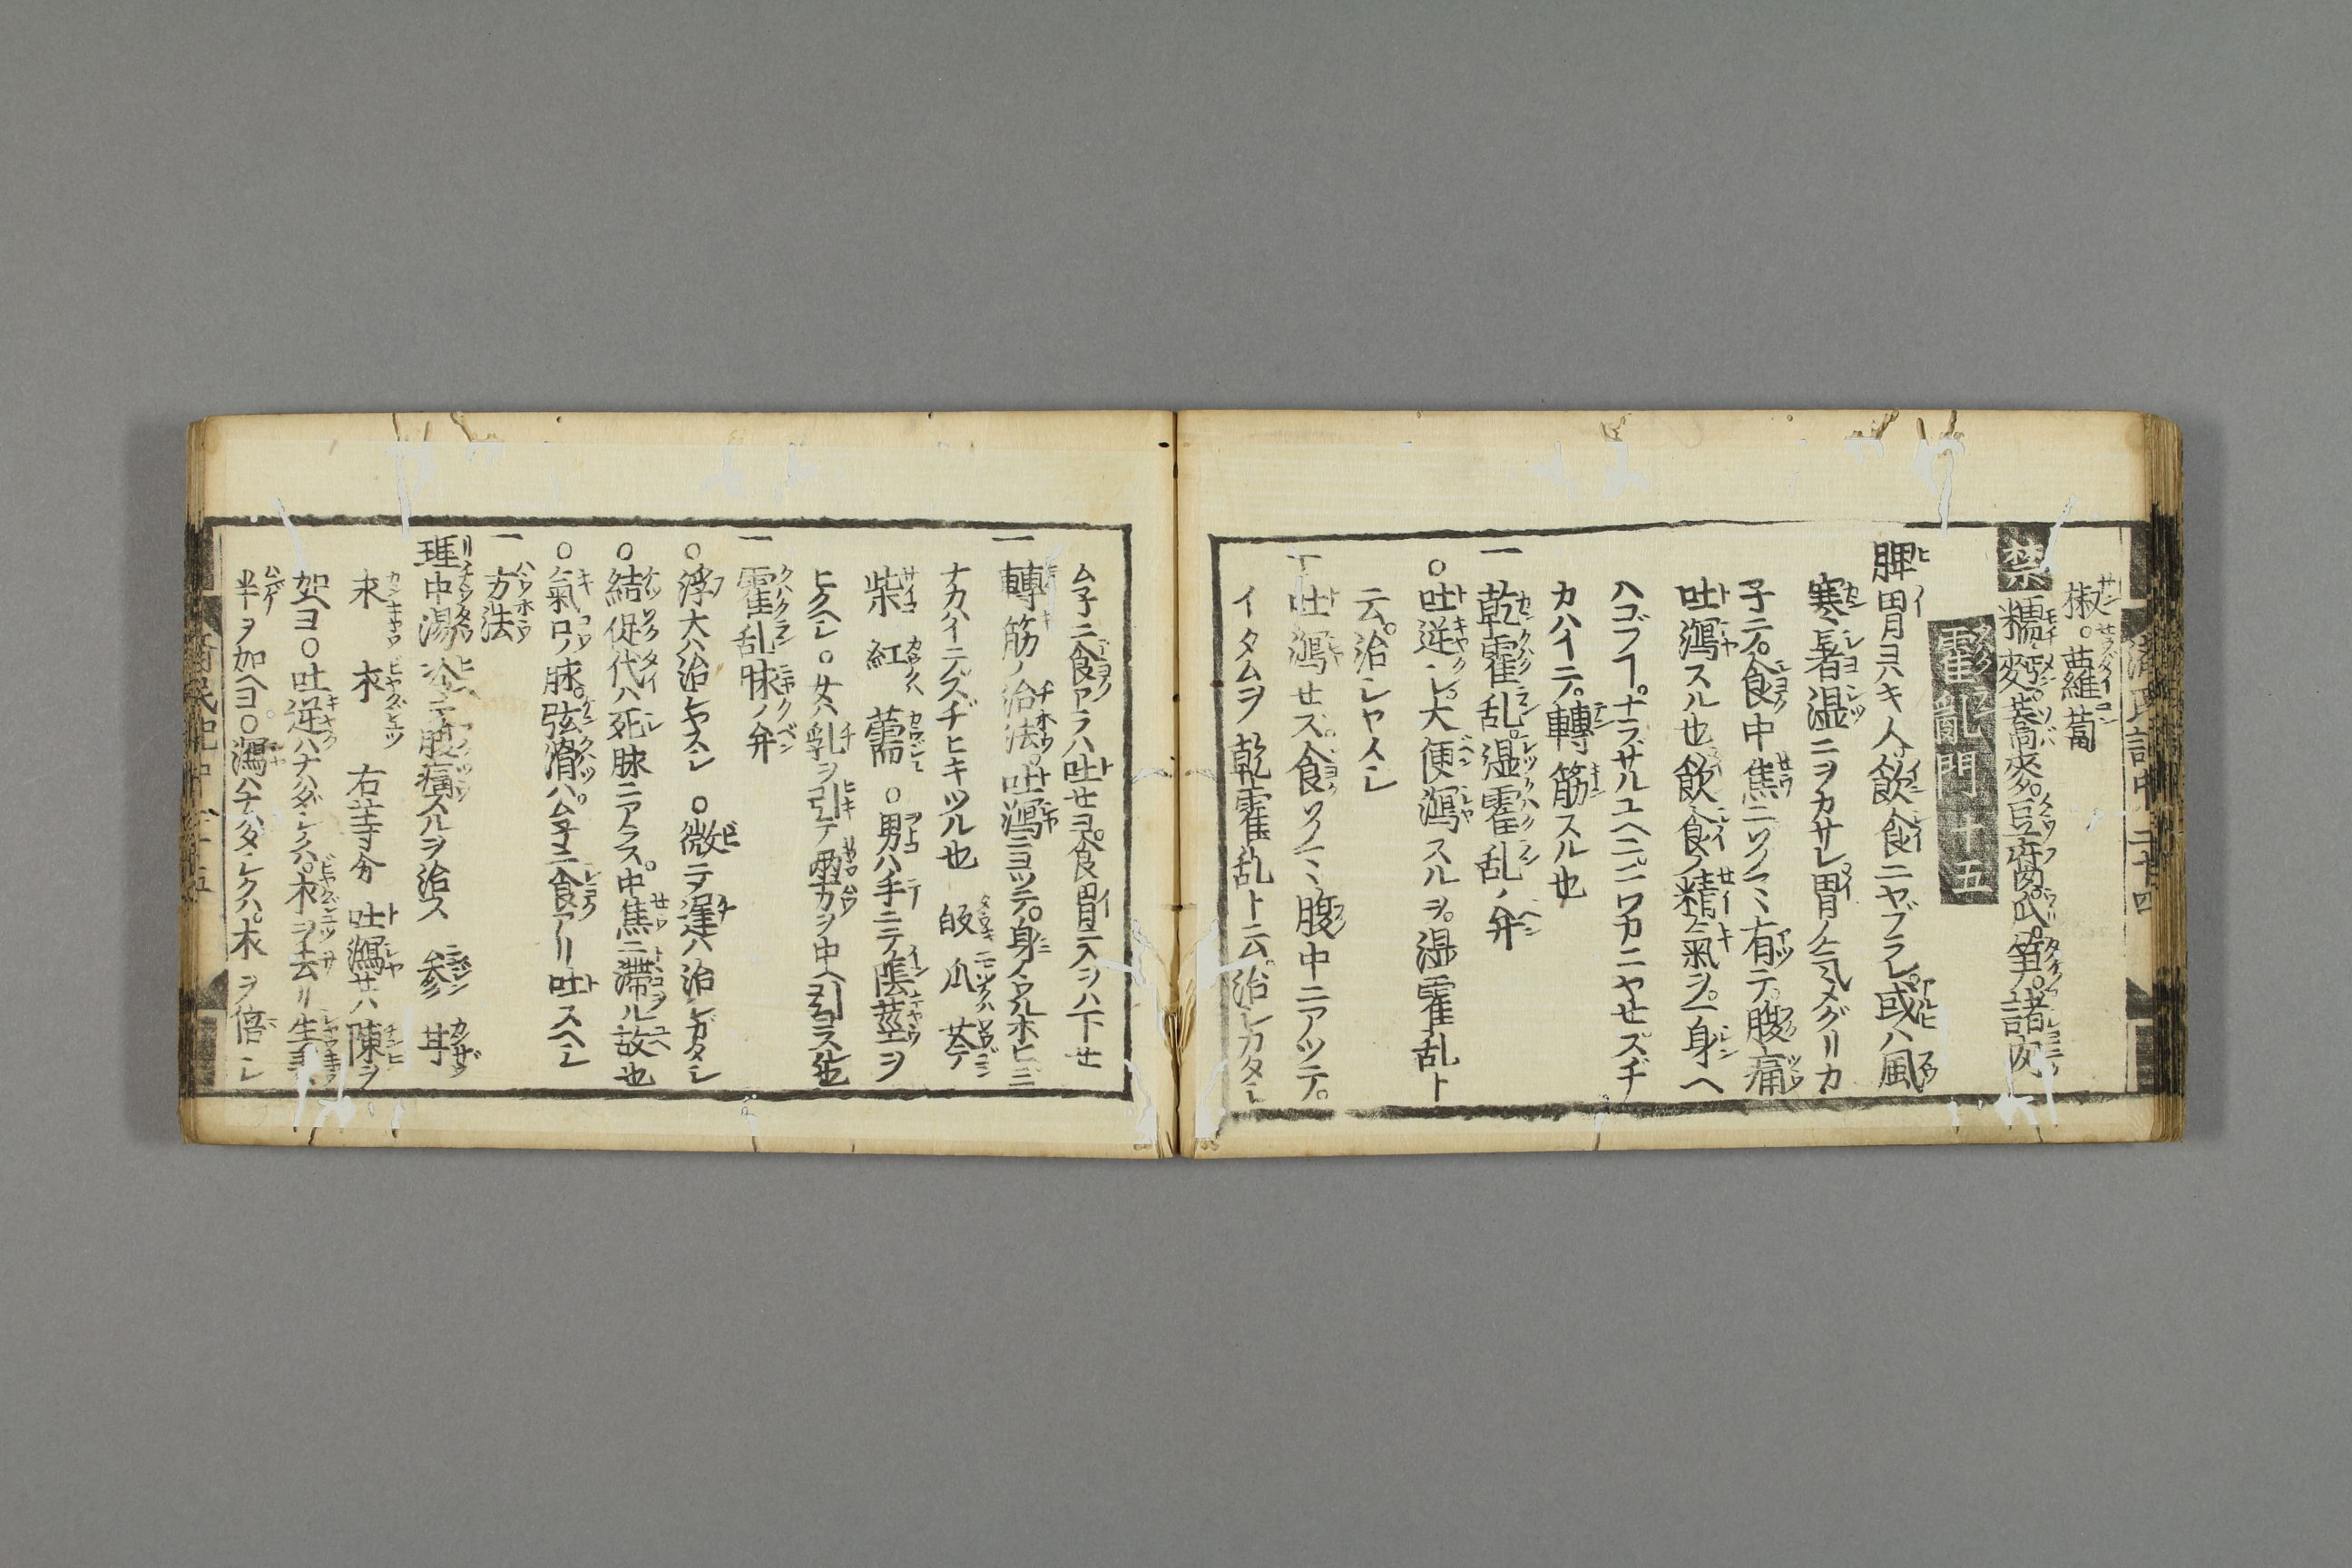 椒。蘿蔔
禁 糯、麪。蕎麦。豆腐。茄。瓜。笋。諸肉
霍亂門十五
脾胃ヨハキ人。飲食ニヤブラレ。或ハ風
寒、暑湿ニヲカサレ胃ノ気メグリカ
子テ。食中焦ニツノミ有テ。腹痛
吐瀉スル也飲食ノ精氣ヲ。一身ヘ
ハコブヿ。ナラザルユヘニ。ニワカニヤセズヂ
カハイテ。轉筋スル也
一 乾霍乱。湿霍乱ノ弁
○吐逆シ。大便瀉スルヲ。湿霍乱ト
云。治シヤスシ
一 吐瀉せス。食ツノミ腹中ニアツテ。
イタムヲ 乾霍乱ト云。治シカタシ
ム子ニ食アラハ吐せヨ。食胃ニ入ヲハ下せ
一 轉筋ノ治法。吐瀉ニヨツテ。身ノウルホヒニニ
ナカハイテスヂヒキツル也 皈 爪 苓
柴 紅 薷 ○男ハ手ニテ陰莖ヲ
ヒクヘシ。女ハ乳ヲ引テ両方ヲ中ヘ引ヨス也
一 霍乱脉ノ弁
○浮大ハ治シヤスシ ○微ニテ遅ハ治シガタシ
○結促代ハ死脉ニアラス。中焦ニ滞ル故也
○氣口ノ脉。弦滑ハム子ニ食アリ 吐スヘシ
一 方法
理中湯 冷ニテ腹痛スルヲ治ス 参 耳
求 求 右等分 吐瀉せハ陳ヲ
加ヘヨ○吐逆ハナハダシクハ。求ヲ去リ生姜
半ヲ加ヘヨ○瀉ハナハタシクハ。求ヲ倍シ